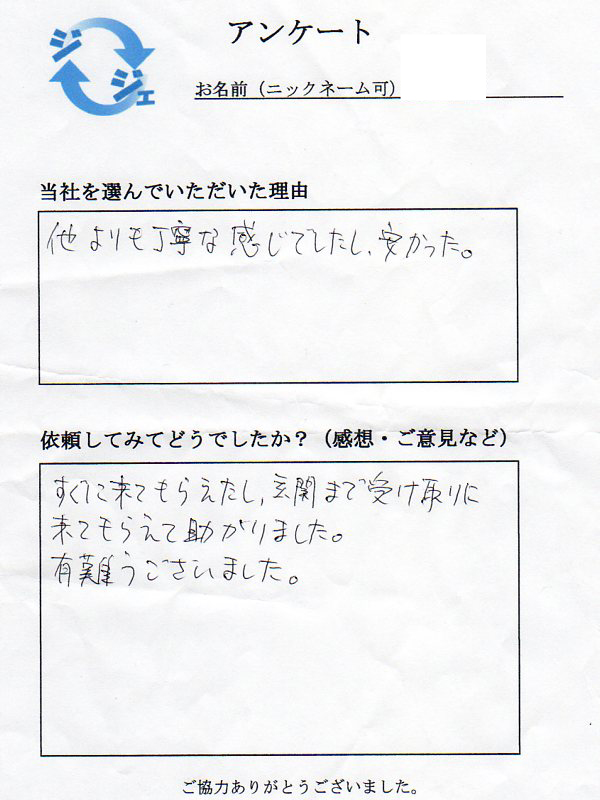 ジジェ
アンケート
お名前（ニックネーム可）
当社を選んでいただいた理由
他よりも丁寧な感じでしたし、安かった。
依頼してみてどうでしたか？（感想・ご意見など）
すぐに来てもらえたし、玄関まで受け取りに
来てもらえて助かりました。
有難うございました。
ご協力ありがとうございました。